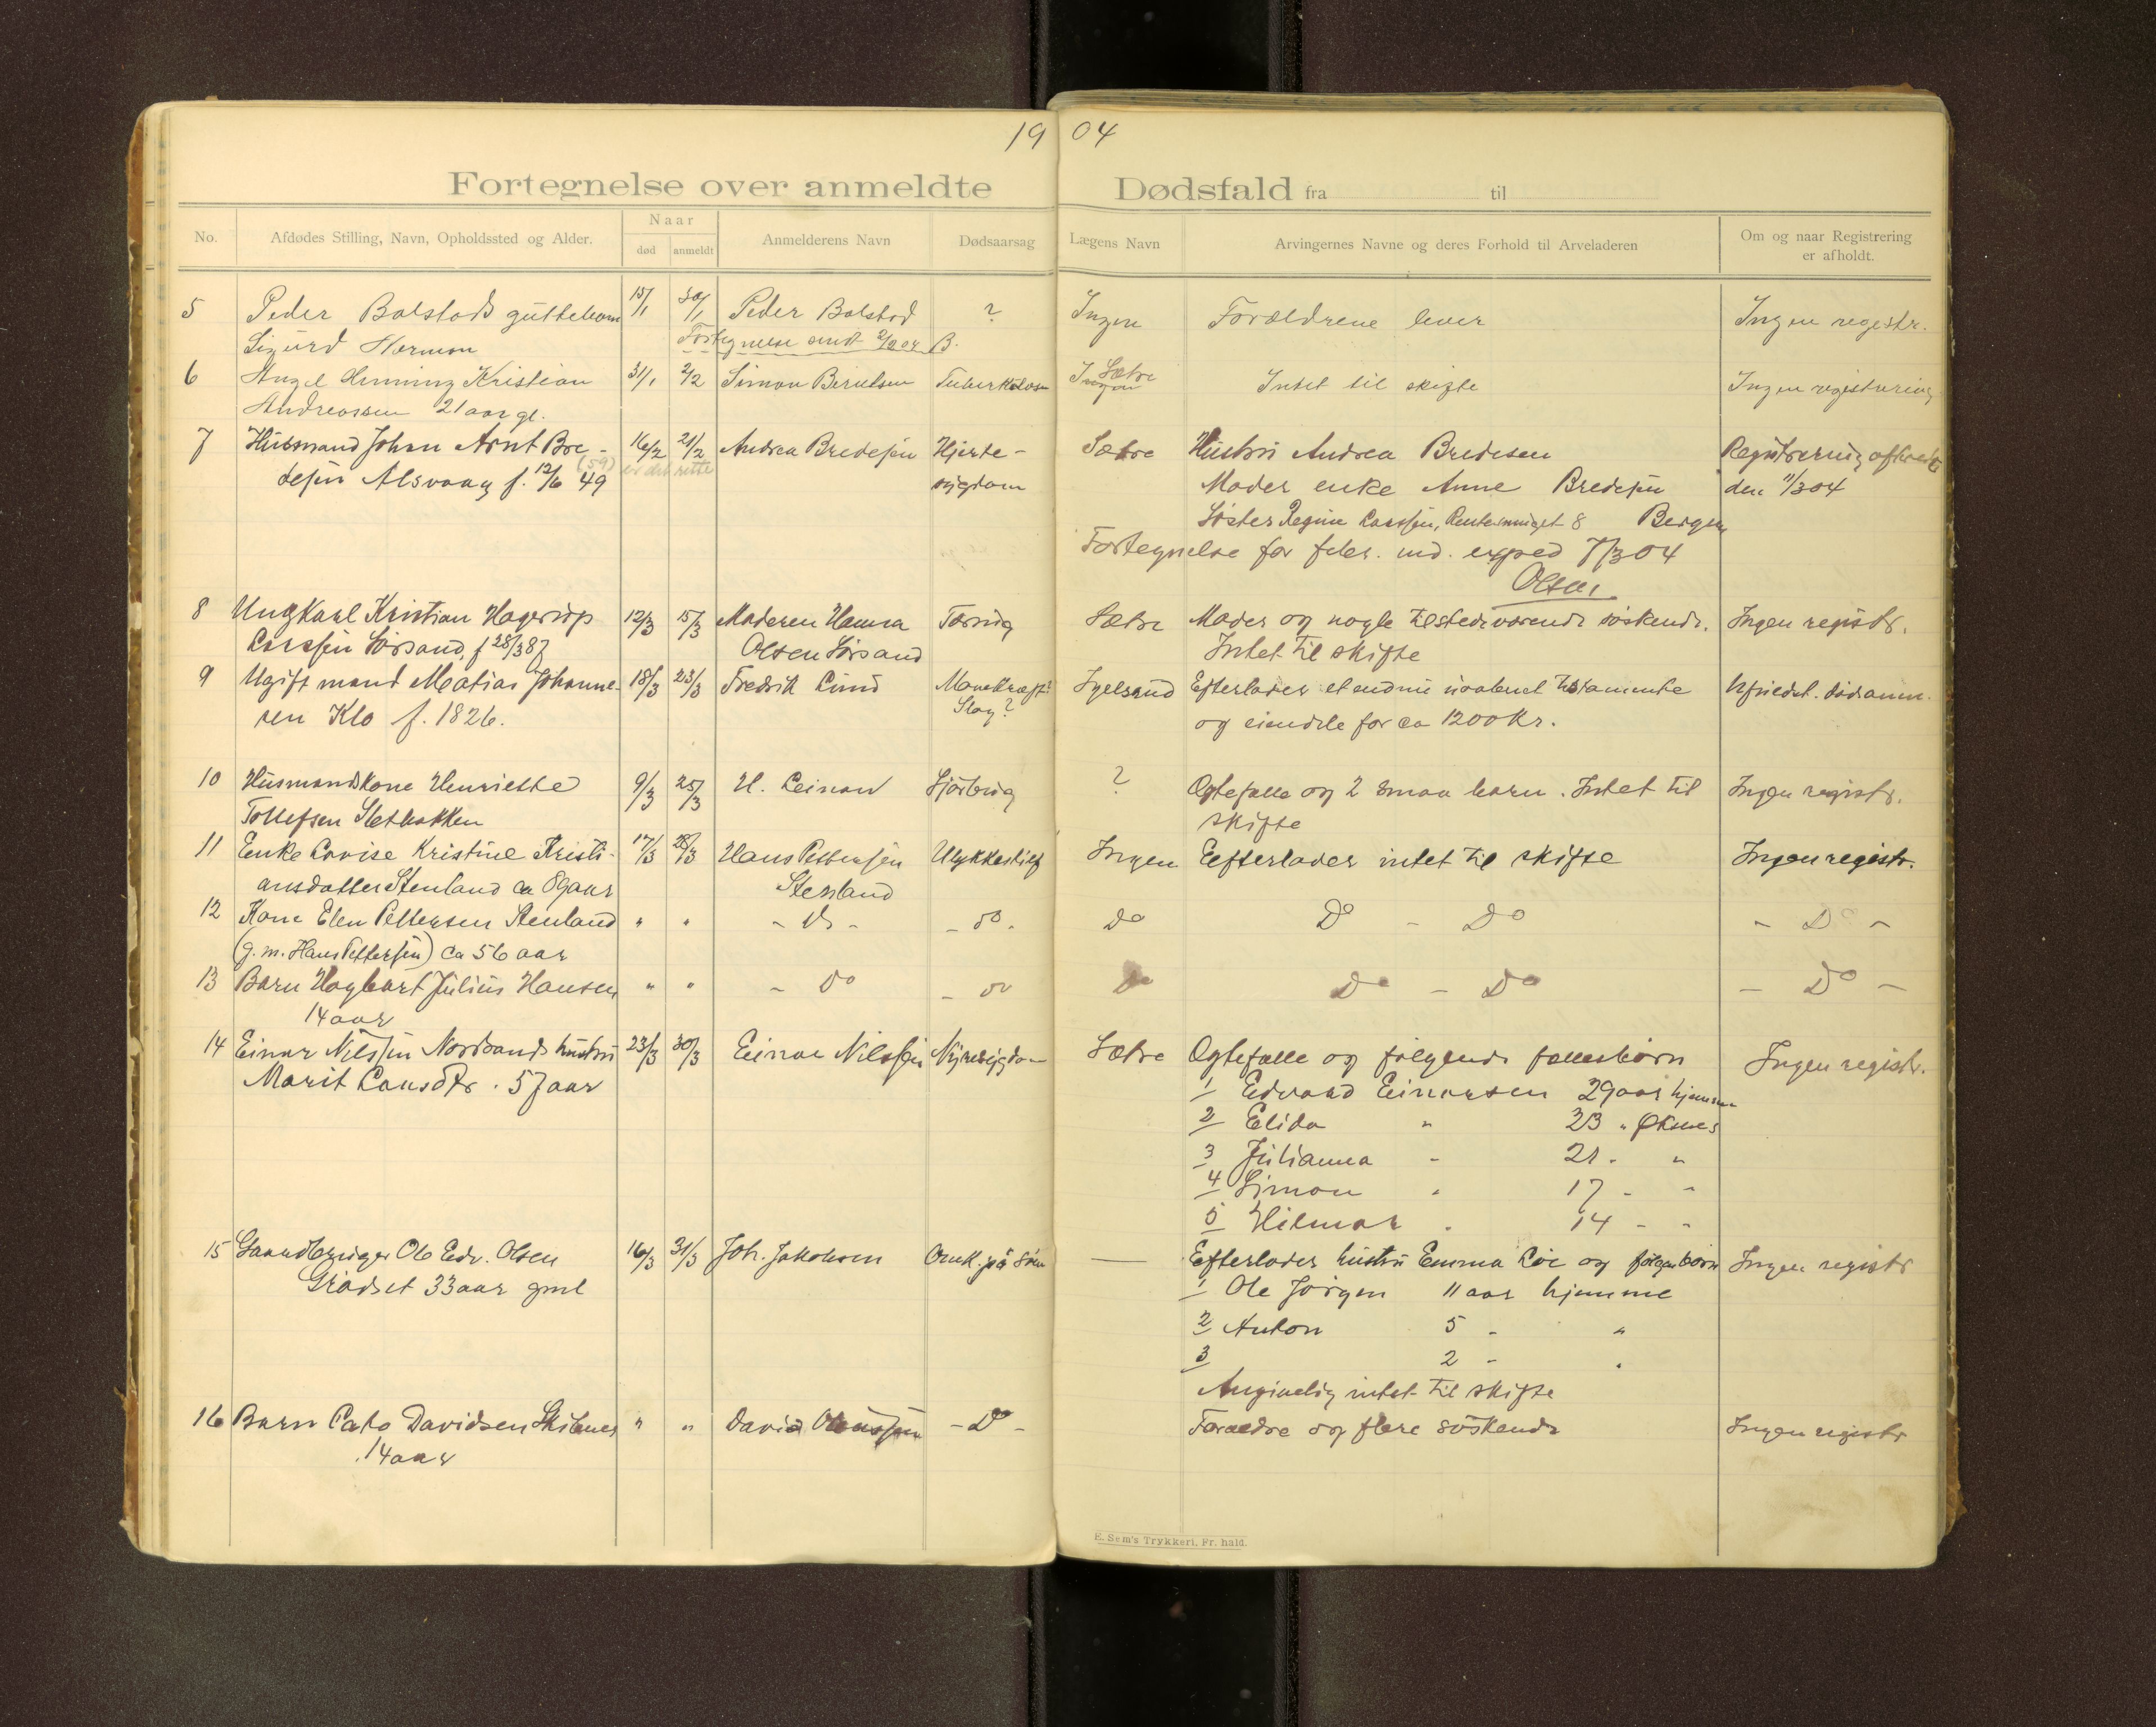 19 04
Fortegnelse over anmeldte Dødsfald fra til
No. Afdødes Stilling, Navn, Opholdssted og Alder. Naar død anmeldt Anmelderens Navn Dødsaarsag Lægens Navn Arvingernes Navne og deres Forhold til Arveladeren Om og naar Registrering er afholdt.
5 Peder Bolstads guttebarn 15/1 30/1 Peder Bolstad ? Ingen Forældrene lever Ingen registr.
Sigurd Herman Fortegnelse sendt 2/2 04 B.
6 Henning Kristian 31/1 2/2 Simon Berntsen Tuberkulose Sætre Intet til skifte Ingen registrering
Andreassen 21 aar gl.
7 Husmand Johan Arnt Bre- 16/2 21/2 Andrea Bredesen Hjerte- Sætre Hustru Andrea Bredesen Registrering afholdt
desen Alsvaag f. 12/6 49 (59) er det rette sygdom Moder enke Anne Bredesen den 11/3 04
Søster Regine Larssen, 8 Bergen
Fortegnelse for febr. md. exped 7/3 04
Olsen
8 Ungkarl Kristian Hagerup 12/3 15/3 Moderen Hanna Tæring Sætre Moder og nogle tilstedeværende søskende. Ingen registr.
Larssen Sørsand, f 28/3 87 Olsen Sørsand Intet til skifte
9 Ugift mand Matias Johanne- 18/3 23/3 Fredrik Lund Mavekræft? Igelsrud Efterlader et endnu uaabnet testamente
sen Klo f. 1826. Slag? og eiendele for ca 1200 Kr.
10 Husmandskone Henriette 9/3 25/3 H. Leinan ? Ægtefælle og 2 smaa barn. Intet til Ingen registr.
Tollefsen Sletbakken skifte
11 Enke Lovise Kristine Kristi- 17/3 28/3 Hans Pettersen Ulykkestilf Ingen Eefterlader intet til skifte Ingen registr.
ansdatter Stenland ca 89 aar Stenland
12 Kone Elen Pettersen Stenland " " - Do - - do. do Do - Do - Do -
(g.m. Hans Pettersen) ca 56 aar
13 Barn Hagbart Julius Hansen " " - Do - do Do Do - Do - Do -
14 aar
14 Einar Nilssen Nordsands hustru 23/3 30/3 Einar Nilssen Nyresygdom Sætre Ægtefælle og følgende fællesbørn Ingen registr.
Marit Larsdtr. 57 aar 1 Edvard Einarsen 29 aar hjemme
2 Elida " 23 " Øksnes
3 Julianna - 21 - "
4 Simon " 17 - "
5 Hilmar . 14 - "
15 Gaardbruger Ole Edv. Olsen 16/3 31/3 Joh. Jakobsen Omk. på sjøen — Efterlader hustru Emma Lie og følgen børn Ingen registr
Grødset 33 aar gml 1 Ole Jørgen 11 aar hjemme
2 Anton 5 - "
3 2 - .
Angivelig intet til skifte
16 Barn Cato Davidsen Skibnes " " David - Do - Forældre og flere søskende Ingen registr
14 aar
E. Sem's Trykkeri, Fr. hald.